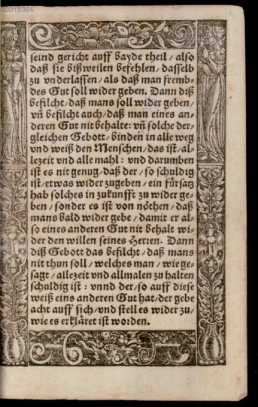 seind gericht auff bayde theil / also
daß sie bißweilen befehlen / dasselb
zu vnderlassen / als daß man fremb-
des Gut soll wider geben. Dann diß
befilcht / daß mans soll wider geben /
vñ befilcht auch / daß man eines an-
deren Gut nit behalte: vñ solche der-
gleichen Gebott / binden in alle weg
vnd weiß den Menschen / das ist / al-
lezeit vnd alle mahl: vnd darumben
ist es nit genug / daß der / so schuldig
ist / etwas wider zugeben / ein fürsatz
hab solches in zukunfft zu wider ge-
ben / sonder es ist von nöthen / daß
mans bald wider gebe / damit er al-
so eines anderen Gut nit behalt wi-
der den willen seines Herren. Dann
diß Gebott das befilcht / daß mans
nit thun soll / welches man / wie ge-
sagt / allezeit vnd allmalen zu halten
schuldig ist: vnnd der / so auff diese
weiß eins anderen Gut hat / der gebe
acht auff sich / vnd stell es wider zu /
wie es erkläret ist worden.